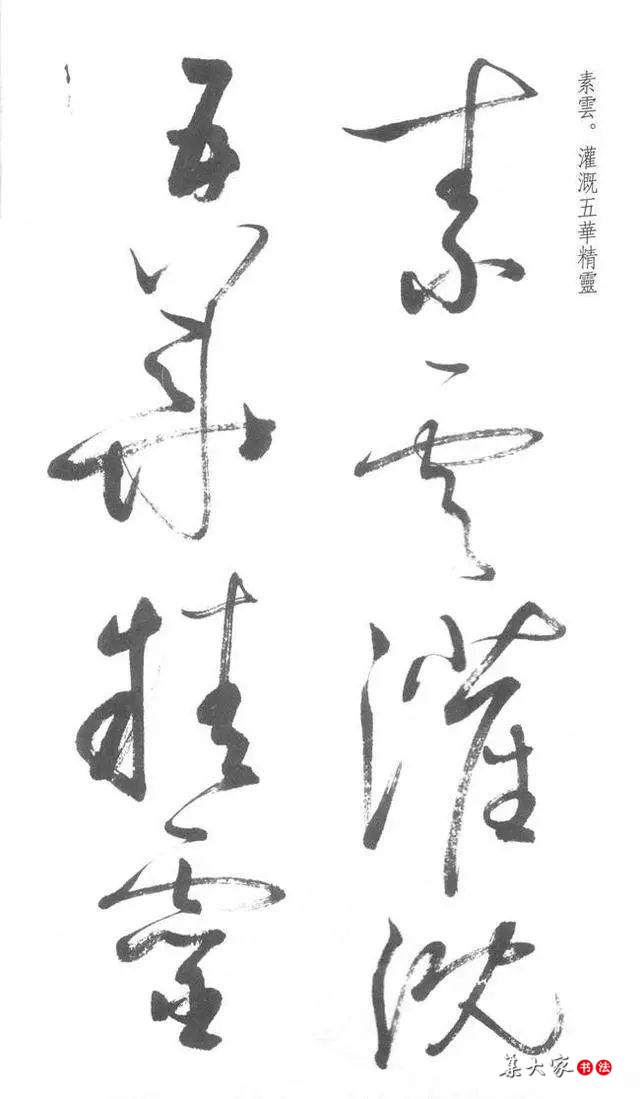 素雲。灌溉五華精靈
素雲灌溉
五華精靈
集大家书法